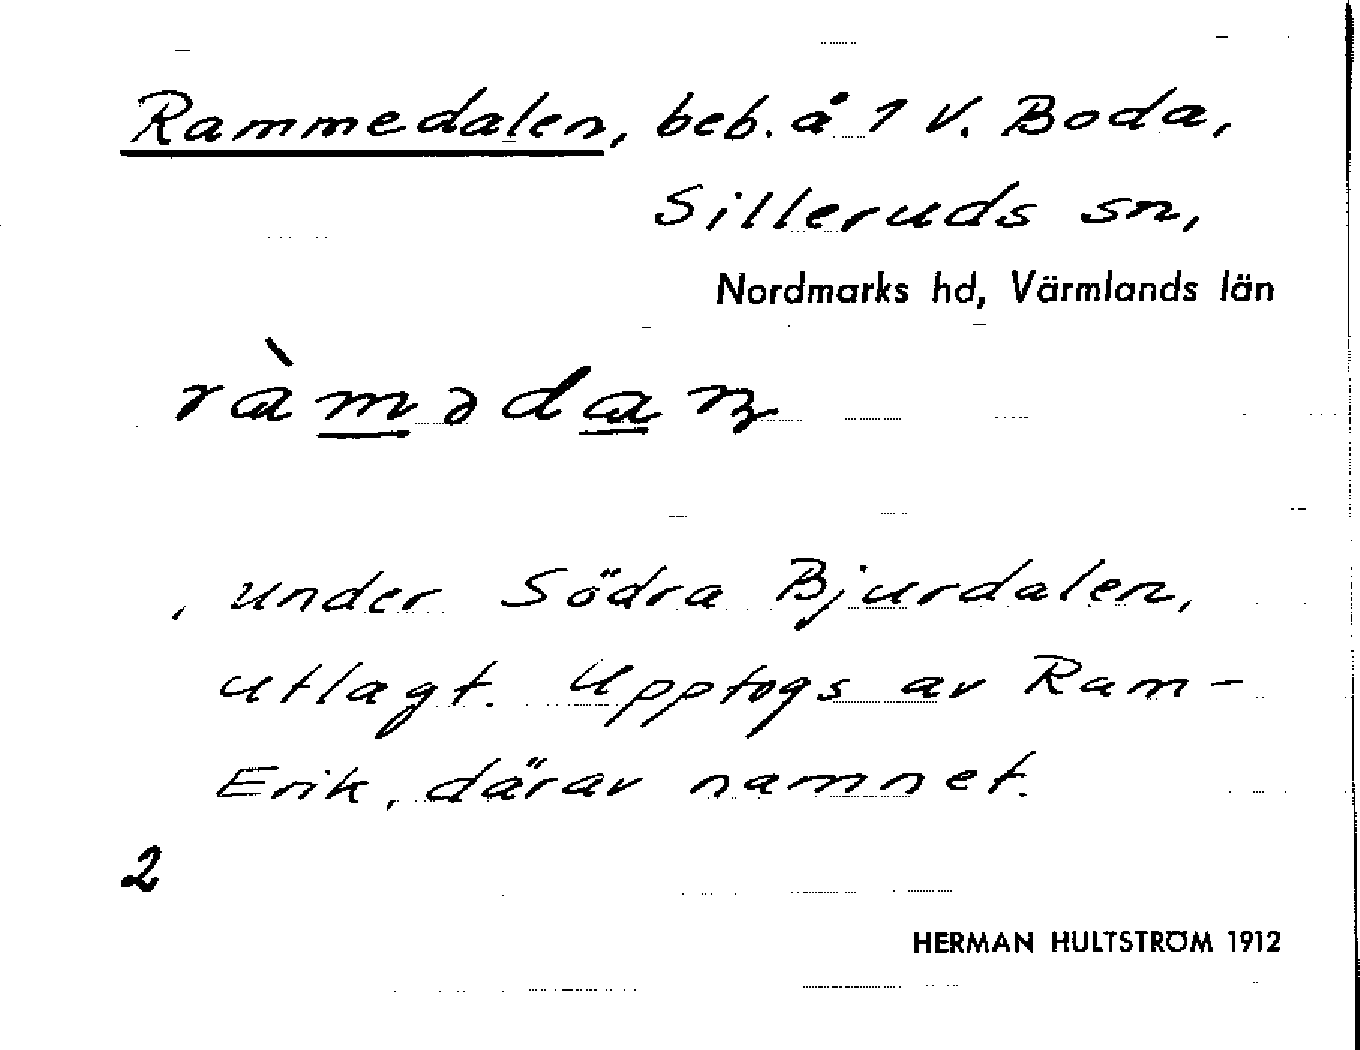 Rammedalen, beb. å 1 V. Boda,
Silleruds sn,
Nordmarks hd, Värmlands län
ràmədaɳ
, under Södra Bjurdalen,
utlagt. Upptogs av Ram-
Erik, därav namnet.
2
HERMAN HULTSTRÖM 1912